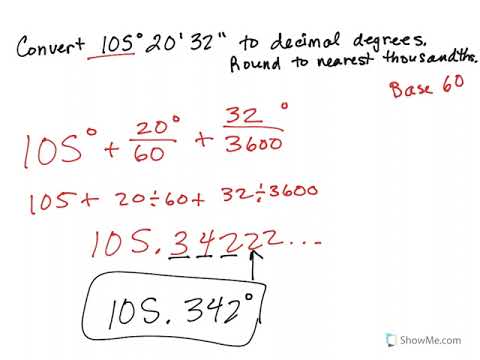 Convert 105° 20' 32" to decimal degrees.
Round to nearest thousandths.
Base 60
105° + 20°/60 + 32°/3600
105 + 20÷60 + 32÷3600
105.34222...
105.342°
ShowMe.com